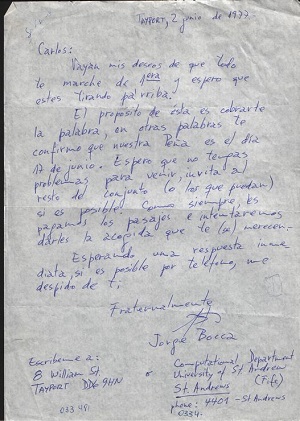 TAYPORT, 2 junio de 1977.-
Carlos:
Vayan mis deseos de que todo
te marche de 1era y espero que
estes tirando pa'rriba.
El propósito de ésta es cobrarte
la palabra, en otras palabras te
confirmo que nuestra Peña es el día
17 de junio. Espero que no tengas
problemas para venir, invita al
resto del conjunto (o los que puedan)
si es posible. Como siempre, les
pagamos los pasajes e intentaremos
darles la acogida que te (se) merecen.-
Esperando una respuesta inme
diata, si es posible por teléfono, me
despido de ti,
Fraternalmente
Jorge Bocca
Escribeme a:
8 William St.
TAYPORT DD6 9HN
033 481
or
Computational Department
University of St. Andrews
St. Andrews (Fife)
phone: 4401 - St Andrews
0334.